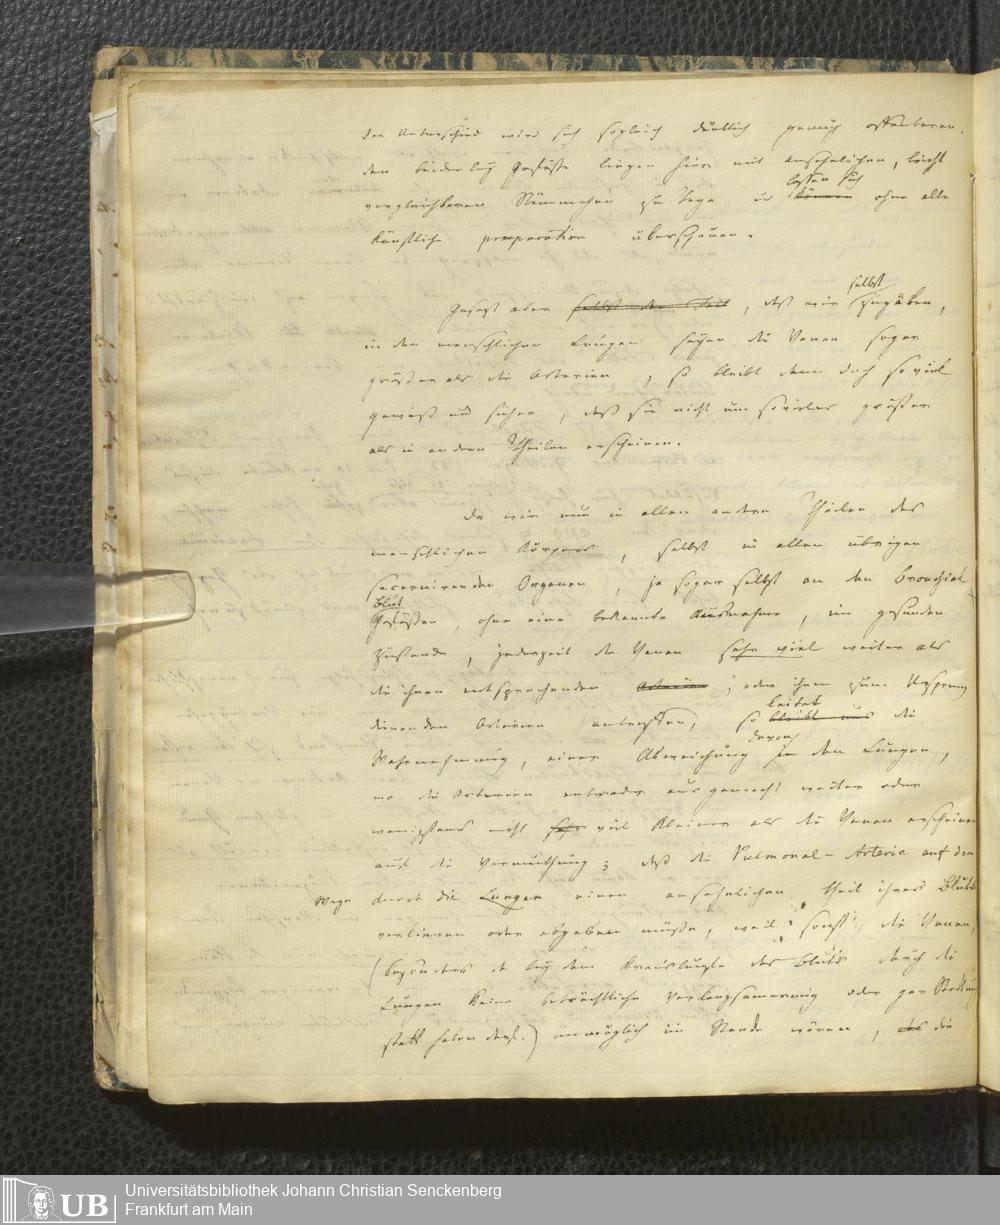 der Unterschied wird sich sogleich deutlich genug offenbaren.
den beiderley Gefäße liegen hier mit ansehnlichen, leicht
vergleichbaren Stämmchen zu Tage u lassen sich können ohne alle
künstliche praeparation überschauen.
Gesezt aber selbst der Fall, daß wir selbst zugäben,
in den menschlichen Lungen seyen die Venen sogar
größer als die Arterien, so bleibt denn doch so viel
gewiß und sicher, daß sie nicht um so vieles größer
als in andern Theilen erscheinen.
Da wir nun in allen andern Theilen des
menschlichen Körpers, selbst in allen übrigen
secernirenden Organen, ja sogar selbst an den bronchial
Blut Gefäßen, ohne eine bekannte Ausnahme, im gesunden
Zustande, jederzeit die Venen sehr viel weiter als
die ihnen entsprechenden Arterien, oder ihnen zum Ursprung
dienenden Arterien antreffen, so leitet bleibt uns die
Wahrnehmung, einer Abweichung davon in den Lungen,
wo die Arterien entweder ausgemacht weiter oder
wenigstens nicht sehr viel kleiner als die Venen erscheinen
auf die Vermuthung; daß die Pulmonal-Arterie auf dem
Wege durch die Lungen einen ansehnlichen Theil ihres Bluts
verlieren oder abgeben müße, weil sonst, die Venen,
(besonders da bey dem Kreislaufe des Bluts durch die
Lungen keine beträchtliche Verlangsamerung oder gar Stockung
statt haben darf.) unmöglich im Stande wären, das die
Universitätsbibliothek Johann Christian Senckenberg
Frankfurt am Main
UB